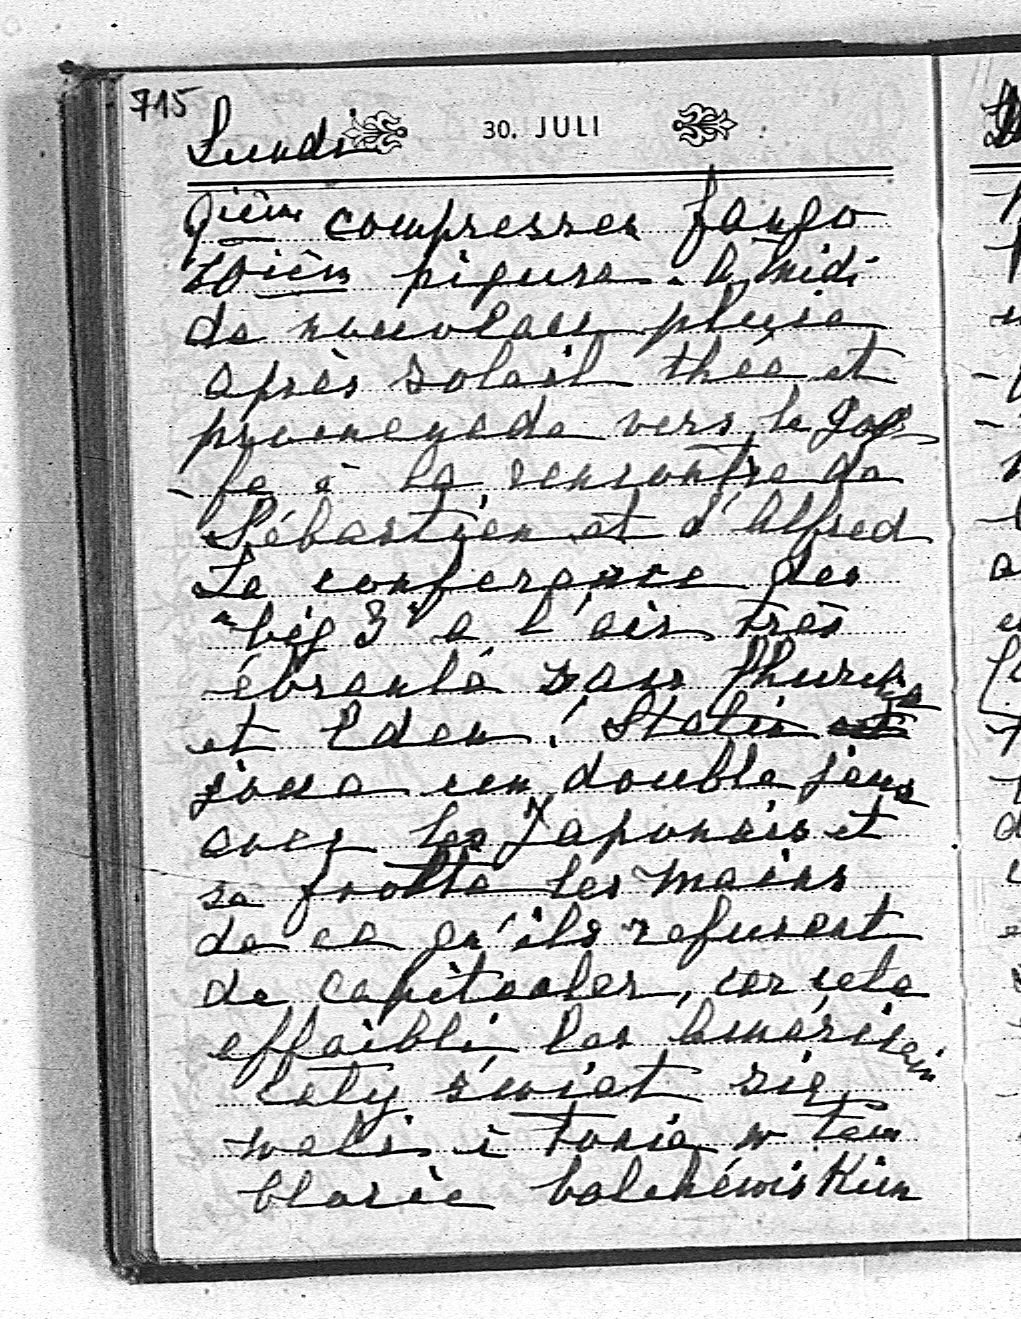 715
Lundi 30. JULI
9ièm compresses fango
10ièm piqure. A midi
de nouveau pluie
après soleil thée et
promenade vers le Gol
fe à la rencontre de
Sébastien et d'Alfred
La conference des
"big 3" a l'air très
ébranlé sans Churchil
et Eden! Stalin
joue un double jeus
avec les Japonais et
se frotte les mains
de ce qu'ils refusent
de capituler, car cela
effaibli les Américain
Cały świat się
wali i tonie w tem
błocie bolchéwiskiem